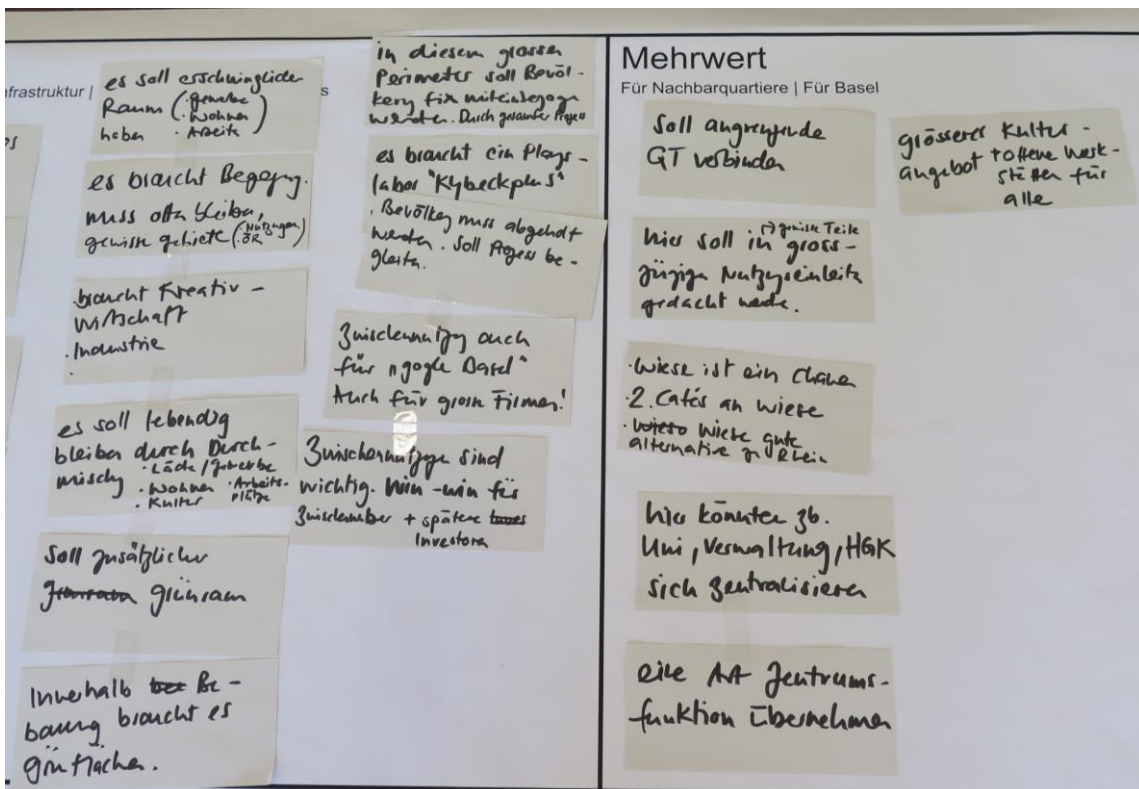 nfrastruktur |
es soll erschwingliche
Raum (· Gewerbe
· Wohnen
haben · Arbeite)
es braucht Begegng.
muss offen bleiben,
gewisse gebiete (· Nutzungen
· ÖR)
· braucht Kreativ-
wirtschaft
· Industrie
·
es soll lebendig
bleiben durch Durch-
mischg · Läde/Gewerbe
· Wohnen · Arbeits-
plätze
· Kultur
Soll zusätzlicher
grünram
Innerhalb Be-
bauung braucht es
grünflächen.
in diesem grossen
Perimeter soll Bevöl-
kerg fix miteinbezogen
werden. Durch gesamter Prozess
es braucht ein Plags-
labor "Klybeckplus"
· Bevölkerg muss abgeholt
werden. Soll Prozess be-
gleiten.
Zwischennutzg auch
für "gogle Basel"
Auch für grosse Firmen!
Zwischennutzge sind
wichtig. Win-win für
Zwischennutzer + spätere
Investoren
Mehrwert
Für Nachbarquartiere | Für Basel
Soll angrenzende
QT verbinden
hier soll in gross-
→ gewisse Teile
zügige Nutzgseinheite
gedacht werde.
· wiese ist ein Chance
· 2. Cafés an wiese
· wieso Wiese gute
alternative zu Rhein
hier könnten zb.
Uni, Verwaltung, HGK
sich zentralisieren
eine Art Zentrums-
funktion übernehmen
grösseres Kultur-
angebot + offene Werk-
stätten für
alle